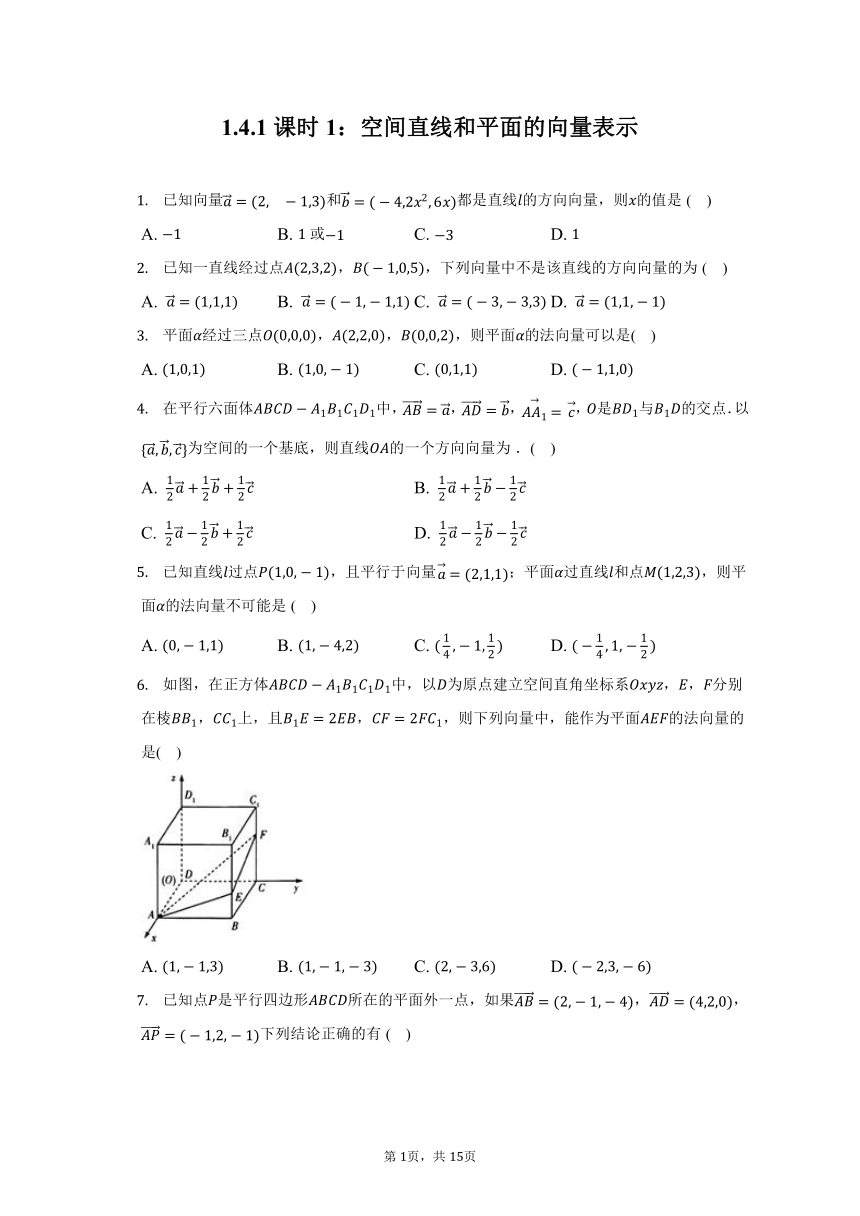 1.4.1 课时 1：空间直线和平面的向量表示
1. 已知向量a⃗ = (2, −1,3)和b⃗ = (−4,2x²,6x)都是直线l的方向向量，则x的值是 ( )
A. −1 B. 1 或−1 C. −3 D. 1
2. 已知一直线经过点A(2,3,2)，B(−1,0,5)，下列向量中不是该直线的方向向量的为 ( )
A. a⃗ = (1,1,1) B. a⃗ = (−1,−1,1) C. a⃗ = (−3,−3,3) D. a⃗ = (1,1,−1)
3. 平面α经过三点O(0,0,0)，A(2,2,0)，B(0,0,2)，则平面α的法向量可以是( )
A. (1,0,1) B. (1,0,−1) C. (0,1,1) D. (−1,1,0)
4. 在平行六面体ABCD − A₁B₁C₁D₁中，AB⃗ = a⃗，AD⃗ = b⃗，AA₁⃗ = c⃗，O是BD₁与B₁D的交点．以
{a⃗,b⃗,c⃗}为空间的一个基底，则直线OA的一个方向向量为．( )
A. 1/2 a⃗ + 1/2 b⃗ + 1/2 c⃗ B. 1/2 a⃗ + 1/2 b⃗ − 1/2 c⃗
C. 1/2 a⃗ − 1/2 b⃗ + 1/2 c⃗ D. 1/2 a⃗ − 1/2 b⃗ − 1/2 c⃗
5. 已知直线l过点P(1,0,−1)，且平行于向量a⃗ = (2,1,1)；平面α过直线l和点M(1,2,3)，则平
面α的法向量不可能是 ( )
A. (0,−1,1) B. (1,−4,2) C. (1/4,−1,1/2) D. (−1/4,1,−1/2)
6. 如图，在正方体ABCD − A₁B₁C₁D₁中，以D为原点建立空间直角坐标系Oxyz，E，F分别
在棱BB₁，CC₁上，且B₁E = 2EB，CF = 2FC₁，则下列向量中，能作为平面AEF的法向量的
是( )
z
D₁
C₁
A₁
B₁
F
(O)
D
C
y
E
A
B
x
A. (1,−1,3) B. (1,−1,−3) C. (2,−3,6) D. (−2,3,−6)
7. 已知点P是平行四边形ABCD所在的平面外一点，如果AB⃗ = (2,−1,−4)，AD⃗ = (4,2,0)，
AP⃗ = (−1,2,−1)下列结论正确的有 ( )
第 1页，共 15页